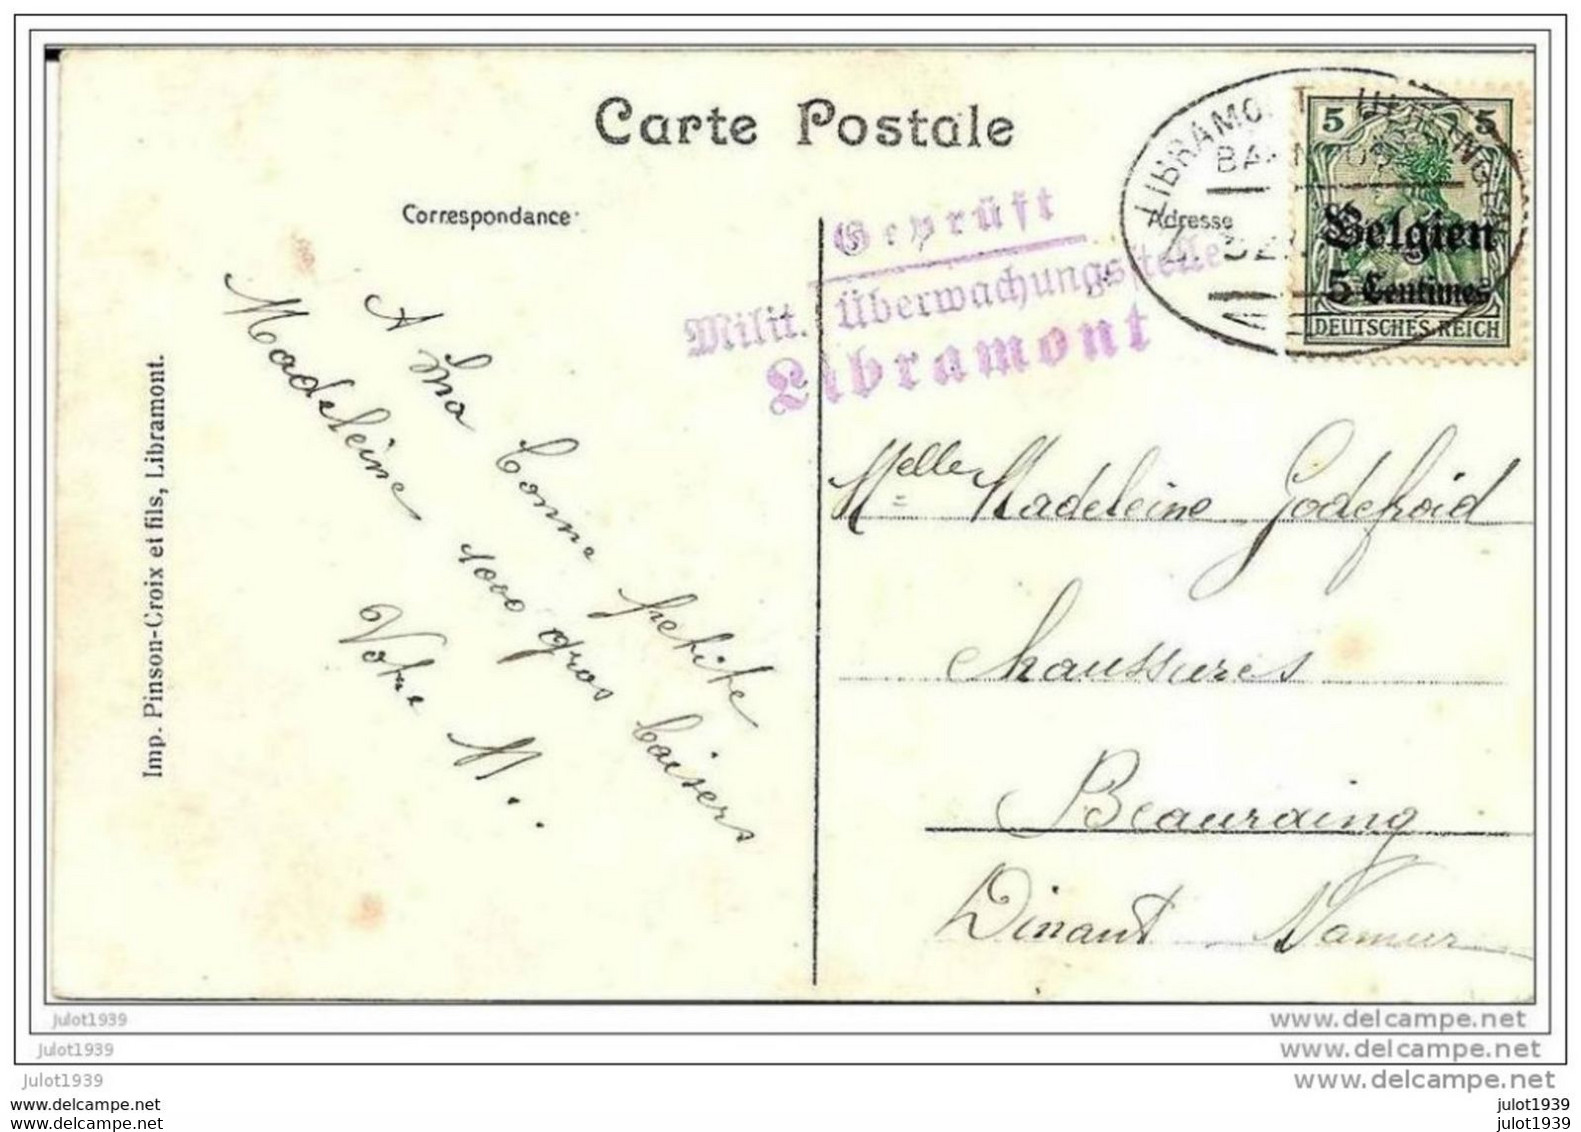 Carte Postale
Correspondance
Adresse
Geprüft
Milit. Überwachungsstelle
Libramont
5 5
Belgien
5 Centimes
DEUTSCHES REICH
Imp. Pinson-Croix et fils, Libramont.
A Ma bonne petite
Madeleine 1000 gros baisers
Votre M.
Melle Madeleine Godefroid
Chaussures
Beauraing
Dinant Namur
julot1939
www.delcampe.net
julot1939
www.delcampe.net
julot1939
www.delcampe.net
www.delcampe.net
julot1939
www.delcampe.net
julot1939